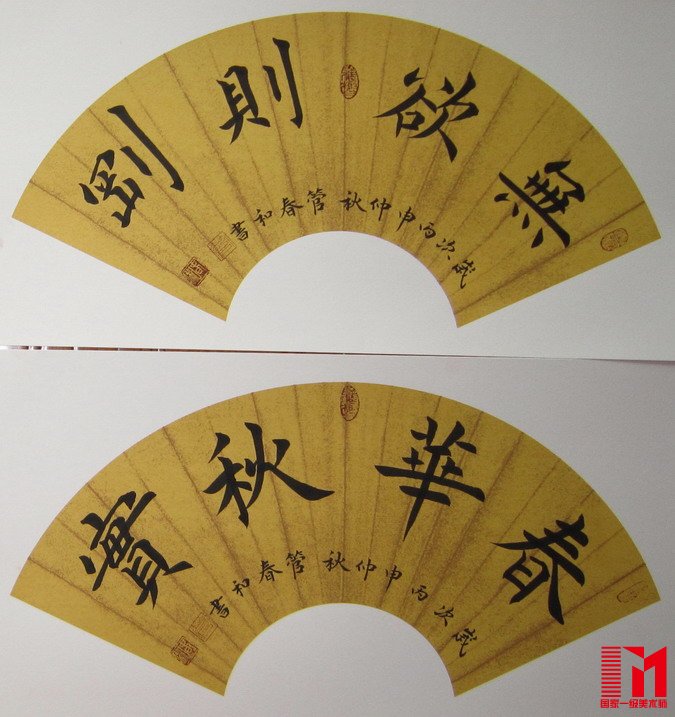 無欲則剛
歲次丙申仲秋 管春和書
春華秋實
歲次丙申仲秋 管春和書
国家一级美术师